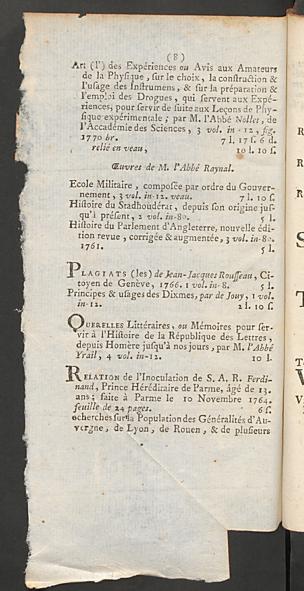 ( 8 )
Art (l') des Expériences ou Avis aux Amateurs
de la Physique, sur le choix, la construction &
l'usage des Instrumens, & sur la préparation &
l'emploi des Drogues, qui servent aux Expé-
riences, pour servir de suite aux Leçons de Phy-
sique expérimentale; par M. l'Abbé Nollet, de
l'Académie des Sciences, 3 vol. in-12, fig.
1770 br. 7 l. 17 s. 6 d.
relié en veau, 10 l. 10 s.
Œuvres de M. l'Abbé Raynal.
Ecole Militaire, composée par ordre du Gouver-
nement, 3 vol. in-12. veau. 7 l. 10 s.
Histoire du Stadhoudérat, depuis son origine jus-
qu'à présent, 2 vol. in-8o. 5 l.
Histoire du Parlement d'Angleterre, nouvelle édi-
tion revue, corrigée & augmentée, 3 vol. in-8o.
1761. 5 l.
PLAGIATS (les) de Jean-Jacques Rousseau, Ci-
toyen de Genève, 1766. 1 vol. in-8. 5 l.
Principes & usages des Dixmes, par de Jouy, 1 vol.
in-12. 2 l. 10 s.
QUERELLES Littéraires, ou Mémoires pour ser-
vir à l'Histoire de la République des Lettres,
depuis Homère jusqu'à nos jours, par M. l'Abbé
Yrail, 4 vol. in-12. 10 l.
RELATION de l'Inoculation de S. A. R. Ferdi-
nand, Prince Héréditaire de Parme, âgé de 13.
ans; faite à Parme le 10 Novembre 1764.
feuille de 24 pages. 6 s.
echerches sur la Population des Généralités d'Au-
vergne, de Lyon, de Rouen, & de plusieurs